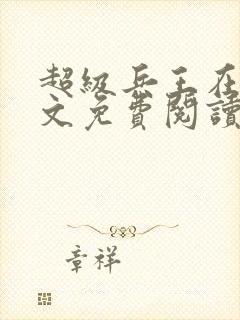 超级兵王在
文免費閱讀
章祥